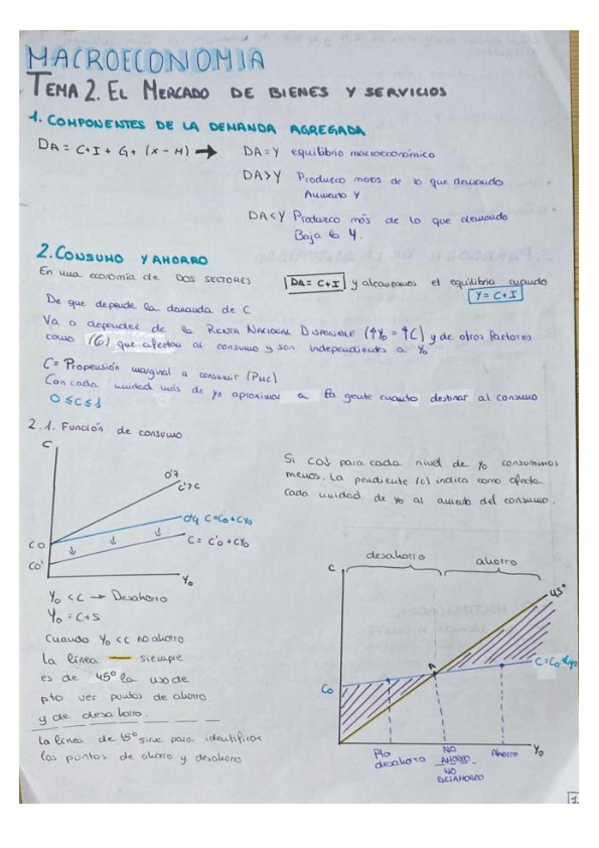 MACROECONOMIA
TEMA 2. EL MERCADO DE BIENES Y SERVICIOS
1. COMPONENTES DE LA DEMANDA AGREGADA
DA = C+I+G+(X-M) → DA=Y equilibrio macroeconómico
DA>Y Produzco menos de lo que demando
Aumento Y
DA<Y Produzco más de lo que demando
Baja la Y.
2. CONSUMO Y AHORRO
En una economía de DOS SECTORES DA = C+I y alcanzamos el equilibrio cuando
Y = C+I
De que depende la demanda de C
Va a depender de la RENTA NACIONAL DISPONIBLE (↑Y₀ = ↑C) y de otros factores
como (G) que afectan al consumo y son independientes a Y₀
C = Propensión marginal a consumir (PMC)
Con cada unidad más de yo aproximar a la gente cuanto destinar al consumo
0≤C≤1
2.1. Función de consumo
Si C₀↓ para cada nivel de Y₀ consumimos
menos. La pendiente (c) indica como afecta
cada unidad de Y₀ al aumento del consumo.
C
0'7
C'>C
0'9 C=C₀+CY₀
C= C'₀+CY₀
C₀
C₀'
Y₀
Y₀ < C → Desahorro
Y₀ = C+S
Cuando Y₀ < C no ahorro
La línea — siempre
es de 45º la uso de
pto ver puntos de ahorro
y de desahorro.
La línea de 45º sirve para identificar
los puntos de ahorro y desahorro
desahorro ahorro
C
45º
A
C=C₀+CY₀
C₀
Y₀
Pto desahorro
NO AHORRO
NO DESAHORRO
Ahorro
1